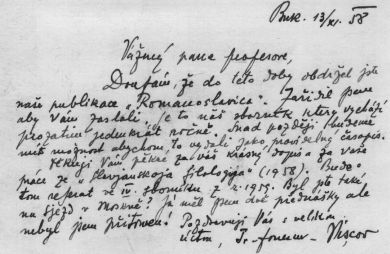 Buk. 13/XI. 58
Vážený pane profesore,
Doufám, že do této doby obdržel jste
naše publikace „Romanoslavica“. Zařídil jsem
aby Vám zaslali. Je to náš sborník který vychází
prozatím jedenkrát ročně. Snad později budeme
mít možnost abychom to vydali jako pravidelný časopis.
Děkuji Vám pěkně za váš krásný dopis a za vaše
práce ze „Slavjanskoja filologija“ (1958). Budu
o tom referat ve IV. sborníku z r. 1959. Byl jste také
na sjezd v Moskvě? Já měl jsem dvě přednášky ale
nebyl jsem přítomen! Pozdravuji Vás s velikou
úctou,